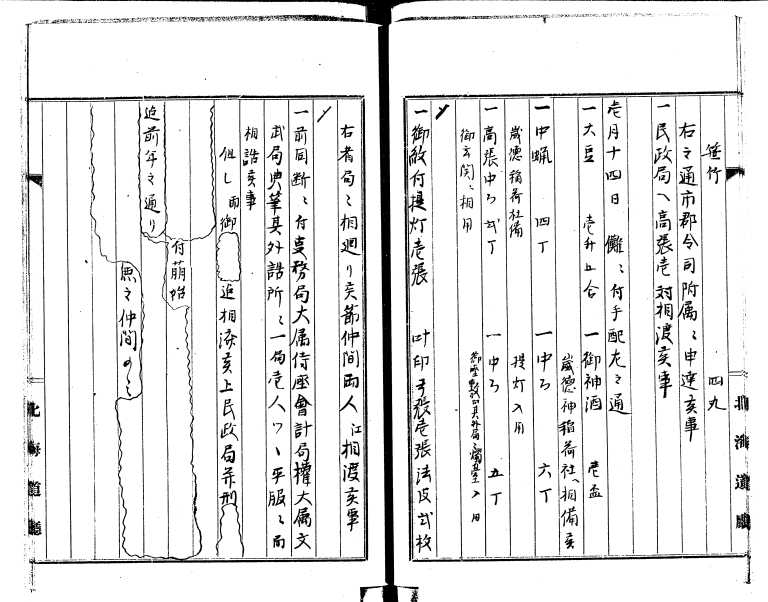 笹竹　四丸
右之通市郡令司附属ニ申達亥事
一民政局へ高張壱対相渡亥事
壱月十四日　儺ニ付手配左之通
一大豆　壱升五合　一御神酒　壱盃
歳徳神稲荷社へ相備亥
一中蝋　四丁　一中ろ　六丁
歳徳稲荷社備　提灯入用
一高張中ろ弐丁　一中ろ　五丁
御玄関ニ相用　御座敷 其外局之燭台入用
一御紋付提灯壱張　叶印弓張壱張法皮弐枚
右者局ニ相廻り亥節仲間両人江相渡亥事
一前同断ニ付麦務局大属侍座會計局権大属文
武局典筆其外諸所ニ一局壱人ツヽ平服ニ而
相詰亥事
但し雨御　迄相済亥上民政局并刑
付萠始
迄前年之通り
庶之仲間
北海道廳
北海道廳